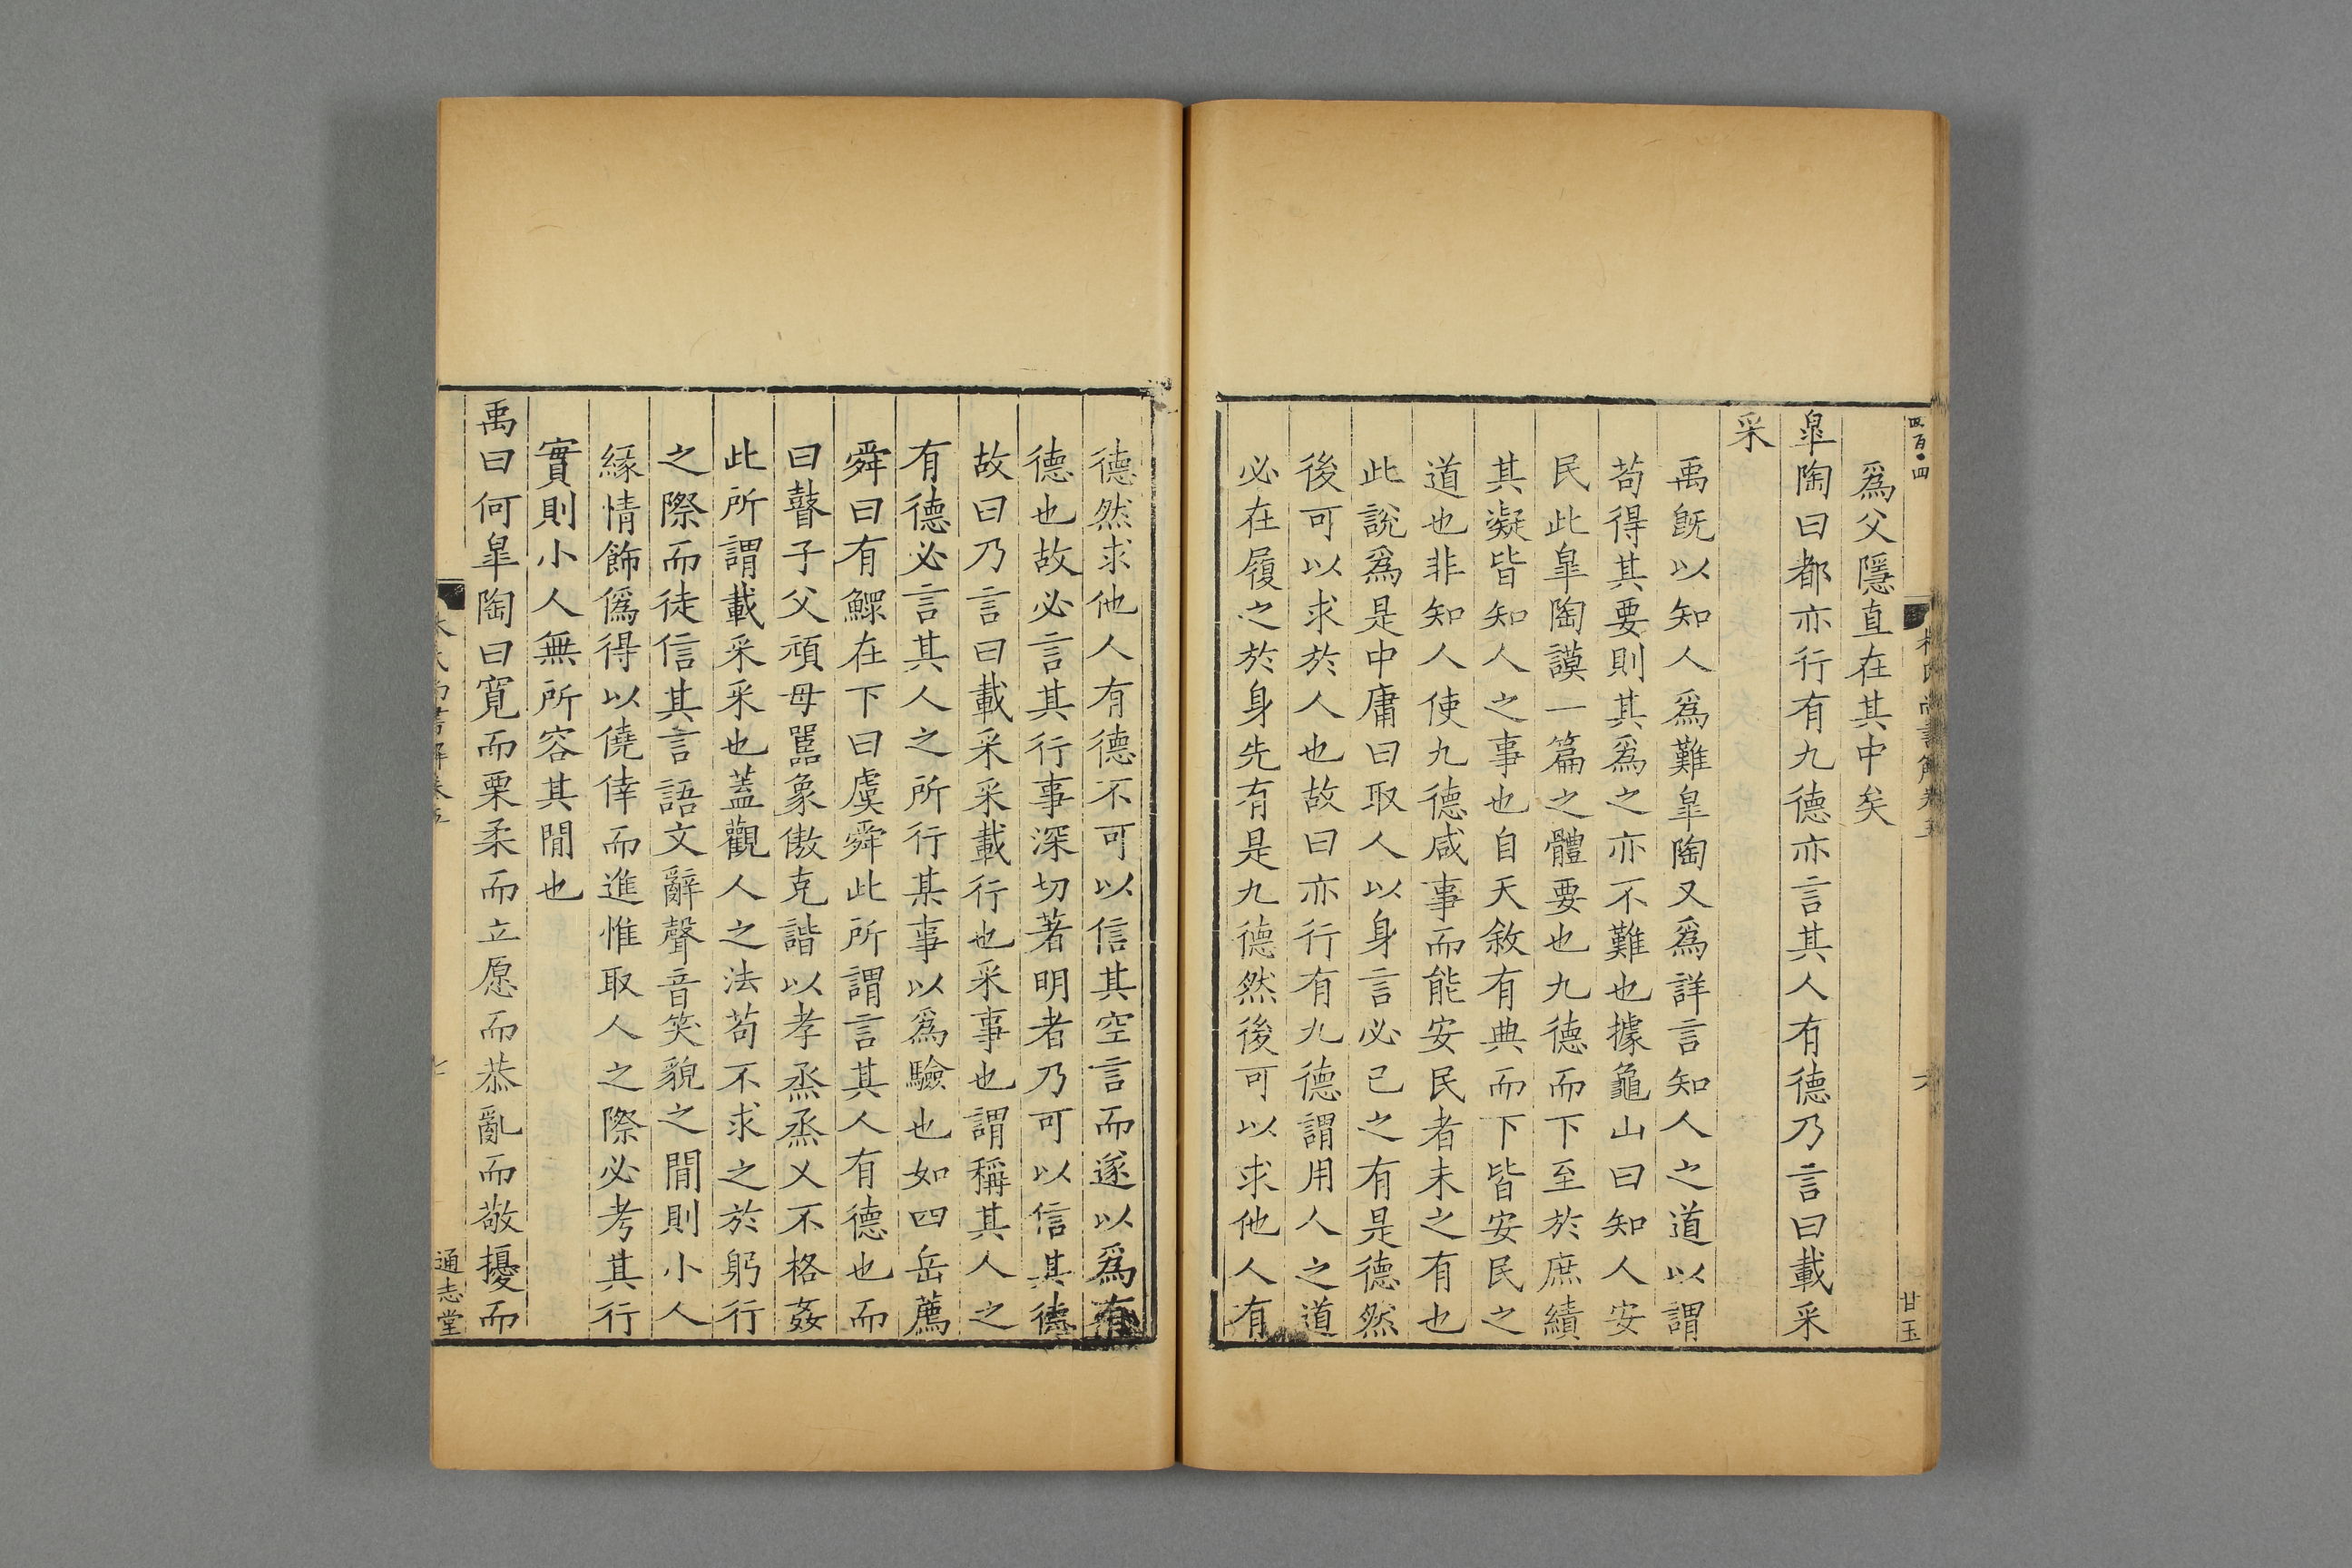 四百〇四
林氏尚書解卷五
六
甘玉
爲父隱直在其中矣
臯陶曰都亦行有九德亦言其人有德乃言曰載采
采
禹旣以知人爲難臯陶又爲詳言知人之道以謂
苟得其要則其爲之亦不難也據龜山曰知人安
民此臯陶謨一篇之體要也九德而下至於庶績
其凝皆知人之事也自天敘有典而下皆安民之
道也非知人使九德咸事而能安民者未之有也
此說爲是中庸曰取人以身言必已之有是德然
後可以求於人也故曰亦行有九德謂用人之道
必在履之於身先有是九德然後可以求他人有
德然求他人有德不可以信其空言而遂以爲有
德也故必言其行事深切著明者乃可以信其德
故曰乃言曰載采采載行也采事也謂稱其人之
有德必言其人之所行某事以爲驗也如四岳薦
舜曰有鰥在下曰虞舜此所謂言其人有德也而
曰瞽子父頑母嚚象傲克諧以孝烝烝乂不格姦
此所謂載采采也蓋觀人之法苟不求之於躬行
之際而徒信其言語文辭聲音笑貌之間則小人
緣情飾僞得以僥倖而進惟取人之際必考其行
實則小人無所容其間也
禹曰何臯陶曰寬而栗柔而立愿而恭亂而敬擾而
林氏尚書解卷五
七
通志堂